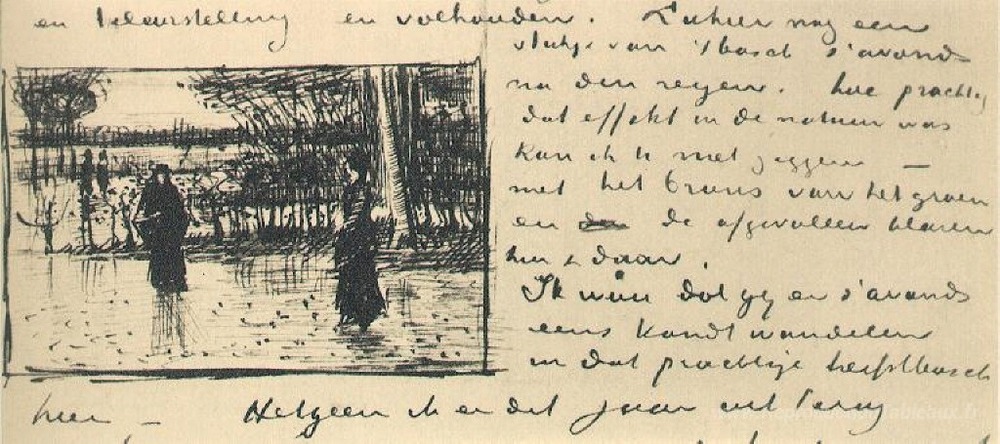 en teleurstelling en volhouden. Ziehier nog een
stukje van 't bosch s'avonds
na den regen. hoe prachtig
dat effekt in de natuur was
kan ik U niet zeggen —
met het brons van het groen
en de afgevallen blaren
hier & daar.
Ik wou dat gij er s'avonds
eens kondt wandelen
in dat prachtige herfstbosch
hier — Hetgeen ik er dit jaar uit terug